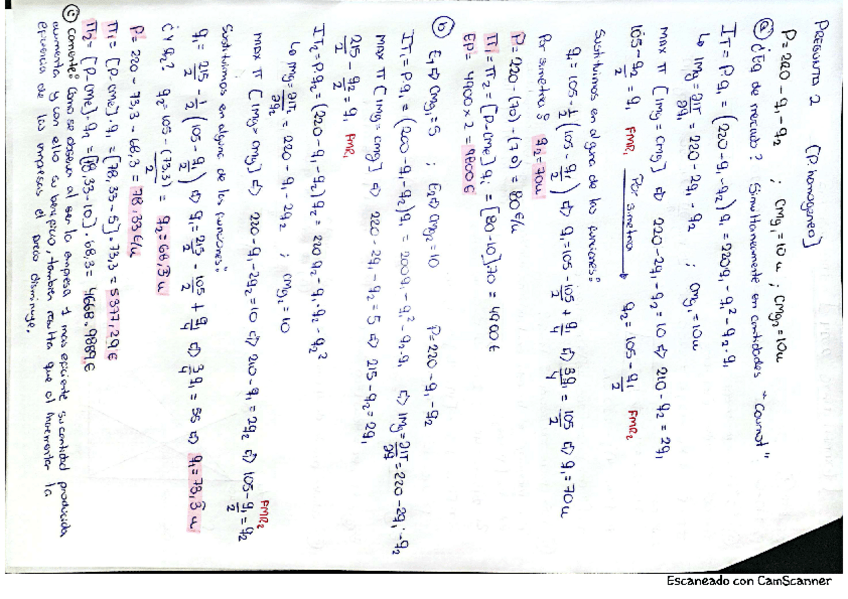 PREGUNTA 2 (P homogéneo)
P=220-q₁-q₂ ; CMg₁=10u ; CMg₂=10u
ⓐ ¿Eq de mercado? Simultáneamente en cantidades "Cournot"
IT=Pq₁=(220-q₁-q₂)q₁=220q₁-q₁²-q₂·q₁
↳ IMg=∂IT/∂q₁=220-2q₁-q₂ ; CMg₁=10u
Max π [IMg=CMg] ⇔ 220-2q₁-q₂=10 ⇔ 210-q₂=2q₁
105-q₂/2=q₁ FMR₁ Por simetría → q₂=105-q₁/2 FMR₂
Sustituimos en alguna de las funciones:
q₁=105-1/2(105-q₁/2) ⇔ q₁=105-105/2+q₁/4 ⇔ 3q₁/4=105/2 ⇔ q₁=70u
Por simetría: q₂=70u
P=220-(70)-(70)=80€/u
π₁=π₂=[P-CMe]q₁=[80-10]·70=4900€
EP=4900×2=9800€
ⓑ E₁⇔CMg₁=5 ; E₂⇔CMg₂=10 P=220-q₁-q₂
IT₁=Pq₁=(200-q₁-q₂)q₁=200q₁-q₁²-q₂·q₁ ⇔ IMg=∂IT/∂q=220-2q₁-q₂
Max π [IMg=CMg] ⇔ 220-2q₁-q₂=5 ⇔ 215-q₂=2q₁
215/2-q₂/2=q₁ FMR₁
IT₂=Pq₂=(220-q₁-q₂)q₂=220q₂-q₁·q₂-q₂²
↳ IMg=∂IT/∂q₂=220-q₁-2q₂ ; CMg₂=10
Max π [IMg=CMg] ⇔ 220-q₁-2q₂=10 ⇔ 210-q₁=2q₂ ⇔ 105-q₁/2=q₂ FMR₂
Sustituimos en alguna de las funciones:
q₁=215/2-1/2(105-q₁/2) ⇔ q₁=215/2-105/2+q₁/4 ⇔ 3/4q₁=55 ⇔ q₁=73,3̂u
¿Y q₂? q₂=105-(73,3)/2=q₂=68,3̂u
P=220-73,3-68,3=78,33€/u
π₁=[P-CMe]·q₁=[78,33-5]·73,3=5377,29€
π₂=[P-CMe]·q₁=[78,33-10]·68,3=4668.9889€
ⓒ Comente: Como se observa al ser la empresa 1 más eficiente su cantidad producida
aumenta y con ello su beneficio, también resulta que al incrementar la
eficiencia de las empresas el precio disminuye.
Escaneado con CamScanner